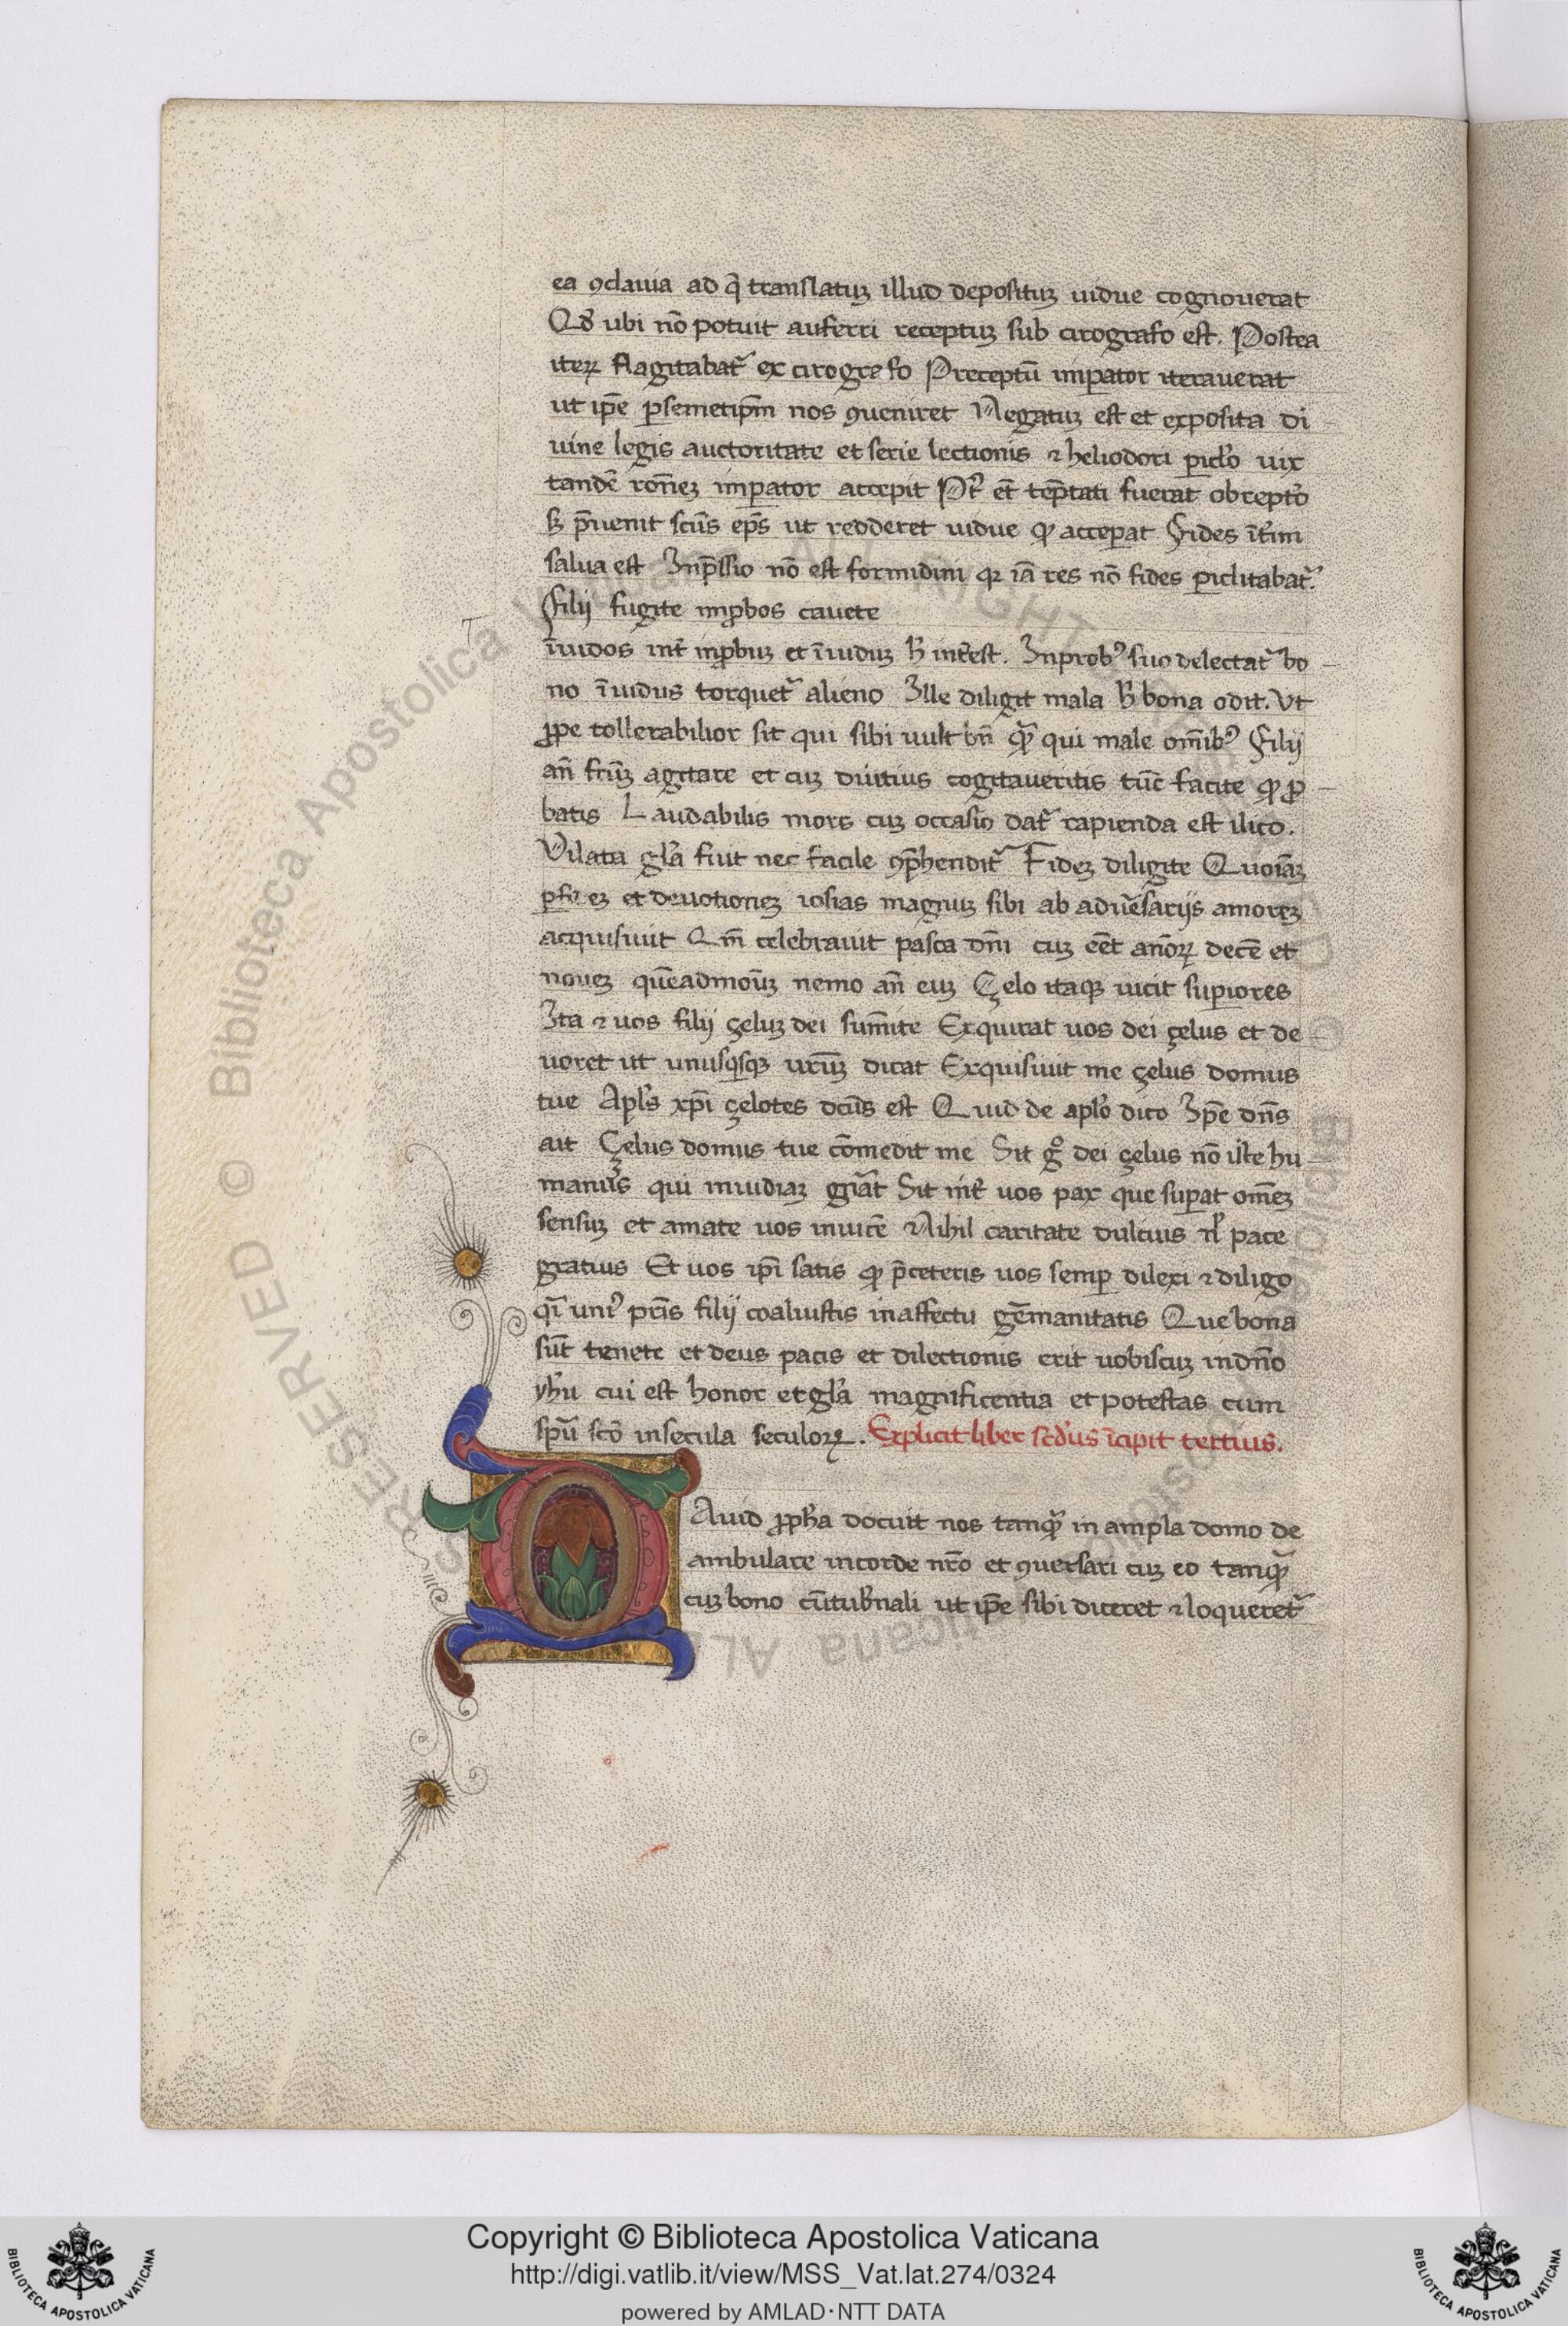 ea ꝯclauia ad q̄ translatuꝫ illud deposituꝫ uidue cognouerat
Qđ ubi nō potuit auferri receptuꝫ sub cirografo est. Postea
iteꝝ flagitabat᷑ ex cirografo Preceptū imꝑator iterauerat
ut ip̄e ꝑsemetip̄m nos ꝯueniret Negatuꝫ est et exposita di
uine legis auctoritate et serie lectionis ⁊ heliodori ꝑicl̓o uix
tandē rōneꝫ imꝑator accepit P᷑t eт̄ tep̄tati fuerat obrepto
sꝫ p̄uenit scūs ep̄s ut redderet uidue ꝙ acceꝑat Fides īt̄im
salua est Inp̄ssio nō est formidini qꝛ iā res nō fides ꝑiclitabat᷑.
Filij fugite imꝓbos cauete
īuidos int̄ inꝓbuꝫ et īuiduꝫ h̓ int̄est. Inprobꝰ suo delectat᷑ bo
no īuidus torquet᷑ alieno Ille diligit mala h̓ bona odit. Vt
ꝓpe tollerabilior sit qui sibi uult bn̄ qᷓꝫ qui male om̄ibꝰ Filij
an̄ fcūꝫ agitare et cuꝫ diutius cogitaueritis tūc facite ꝙ ꝓ
batis Laudabilis mors cuꝫ occasio dat᷑ rapienda est ilico.
Dilata gl̓a fiut nec facile ꝯp̄hendit᷑ Fideꝫ diligite Quoīaꝫ
ꝑfideꝫ et deuotioneꝫ iosias magnuꝫ sibi ab adūsarijs amoreꝫ
acquisiuit Qm̄ celebrauit pasca dn̄i cuꝫ eēt anōꝝ decē et
noueꝫ quēadmoūꝫ nemo an̄ euꝫ Çelo itaqꝫ uicit suꝑiores
Ita ⁊ uos filij çeluꝫ dei sum̄ite Exquirat uos dei çelus et de
uoret ut unusqisqꝫ ur̄ūꝫ dicat Exquisiuit me çelus domus
tue Apl̓s xp̄i çelotes dcūs est Quid de apl̓o dico Ip̄e dn̄s
ait Çelus domus tue cōmedit me Sit gͦ dei çelus nō iste hu
manus qui inuidiaꝫ gn̄at Sit int̄ uos pax que suꝑat om̄eꝫ
sensuꝫ et amate uos inuicē Nihil caritate dulcius nl̓ pace
gratius Et uos ip̄i satis ꝙ p̄ceteris uos semꝑ dilexi ⁊ diligo
qī uniꝰ pr̄is filij coaluistis inaffectu gēmanitatis Que bona
sūt tenete et deus pacis et dilectionis erit uobiscuꝫ indn̄o
yh̓u cui est honor et gl̓a magnificentia et potestas cum
sp̄u scō insecula seculoꝝ. Explicit liber scd̓us īcipit tertius.
DAuid ꝓph̓a docuit nos tanqᷓꝫ in ampla domo de
ambulare incorde nr̄o et ꝯuersari cuꝫ eo tanqᷓꝫ
cuꝫ bono cūtub̓nali ut ip̄e sibi diceret ⁊ loqueret᷑
© Biblioteca Apostolica Vaticana ALL RIGHTS RESERVED
Copyright © Biblioteca Apostolica Vaticana
http://digi.vatlib.it/view/MSS_Vat.lat.274/0324
powered by AMLAD·NTT DATA
BIBLIOTECA APOSTOLICA VATICANA
BIBLIOTECA APOSTOLICA VATICANA